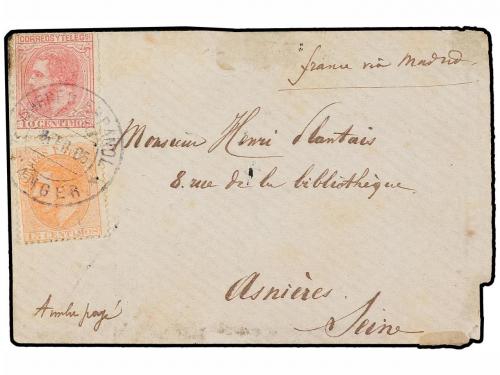 CORREOS Y TELEGS
10 CENTIMOS
france via Madrid.
ESPAÑOL
15 CENTIMOS
Monsieur Henri Plantais
8. rue de la bibliothèque.
Asnières.
Seine